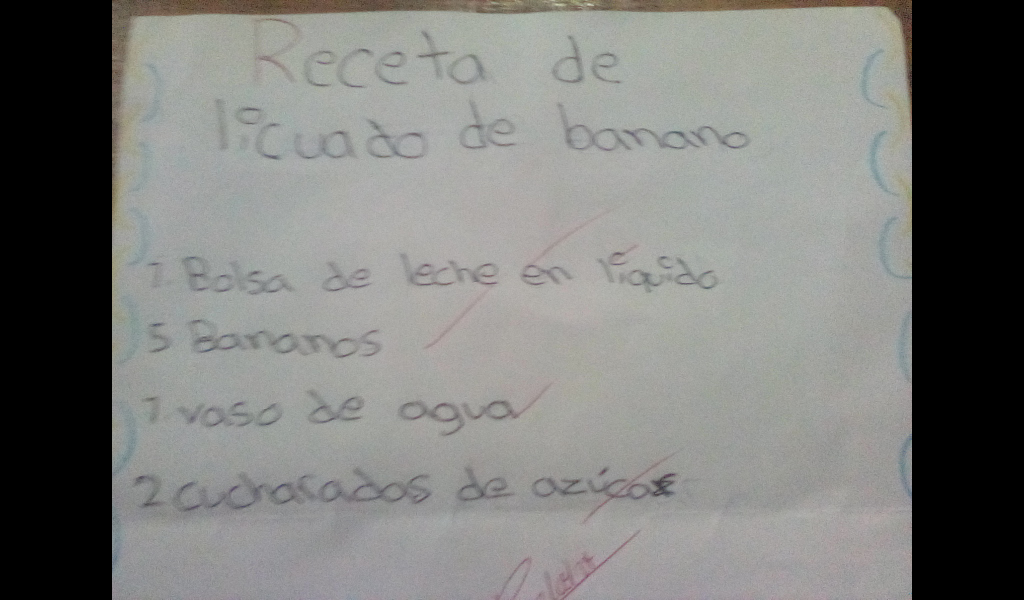 Receta de
licuado de banano
1 Bolsa de leche en líquido
5 Bananos
1 vaso de agua
2 cucharadas de azúcar